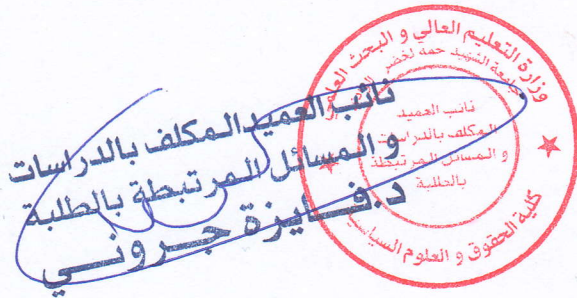 وزارة التعليم العالي و البحث العلمي
جامعة الشهيد حمه لخضر
نائب العميد
المكلف بالدراسات
و المسائل المرتبطة
بالطلبة
كلية الحقوق و العلوم السياسية
نائب العميد المكلف بالدراسات
و المسائل المرتبطة بالطلبة
د.فـايزة جـرونـي